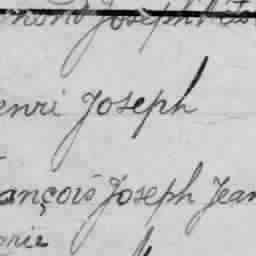 Joseph
enri Joseph
ançois Joseph Jean
rie